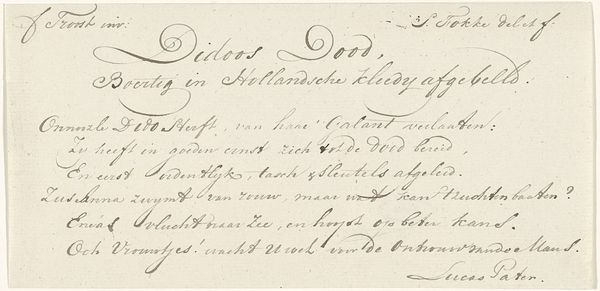 C Troost inv: S. Fokke del et f:
Didoos Dood,
Boertig in Hollandsche kleedy afgebeeld.
Onnozle Dido Sterft, van haar Galant verlaaten:
Zy heeft in goeden ernst zich tot de Dood bereid,
En eerst ordentlyk, tasch & sleutels afgeleid.
Zus Anna zwymt van rouw, maar wat kan zuchten baaten?
Eneas vlucht naar Zee, en hoopt op beter kans.
Och Vrouwtjes! wacht U wel voor de ontrouw van de Mans.
Lucas Pater.